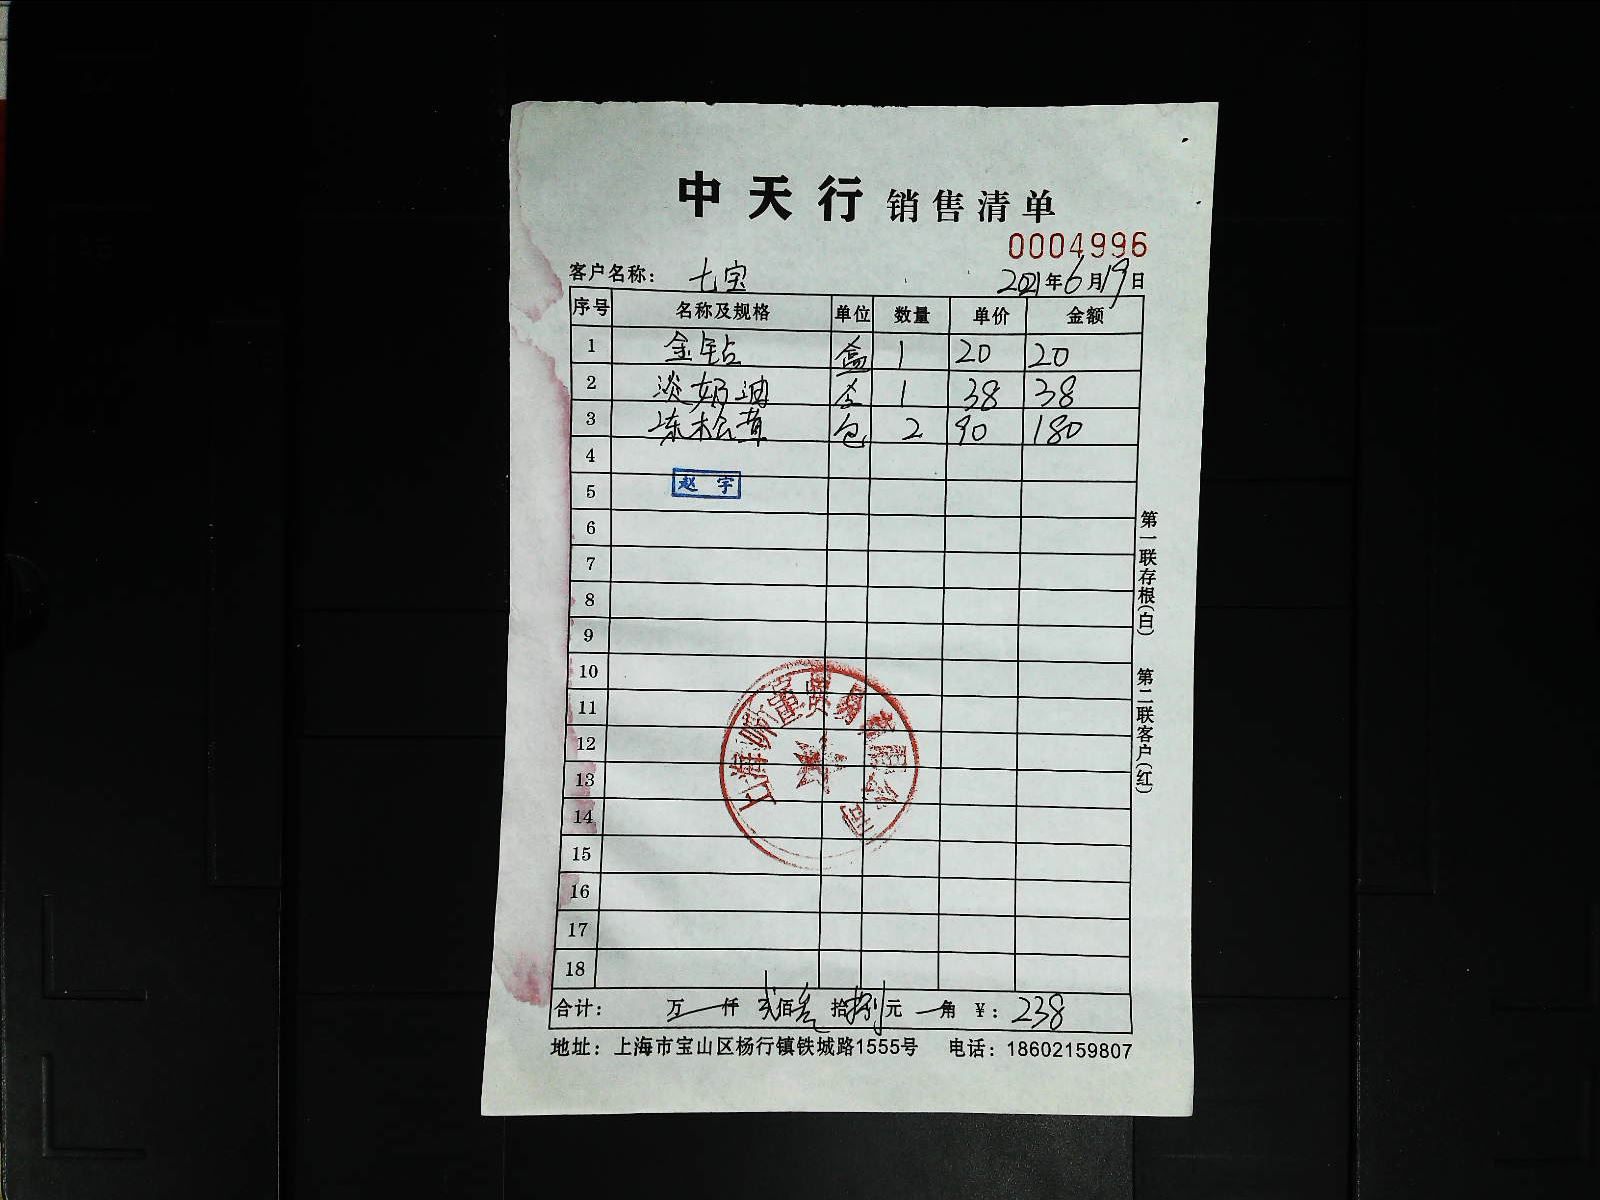 中天行 销售清单
0004996
客户名称： 七宝 2021年6月19日
序号 名称及规格 单位 数量 单价 金额
1 金钻 盒 1 20 20
2 淡奶油 盒 1 38 38
3 冻松茸 包 2 90 180
4
5 赵宇
6
7
8
9
10
11
12
13
14
15
16
17
18
上海 贸易有限公司
合计： 万 仟 贰佰叁拾捌元 角 ￥：238
地址：上海市宝山区杨行镇铁城路1555号 电话：18602159807
第一联存根(白) 第二联客户(红)